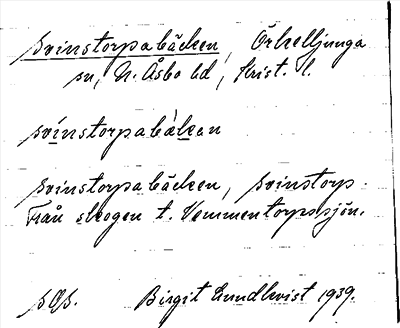 Svinstorpabäcken, Örkelljunga
sn, N. Åsbo hd, Krist. l.
svínstorpabäkan
Svinstorpabäcken, Svinstorp.
Från skogen t. Vemmentorpssjön.
Birgit Lundkvist 1939.